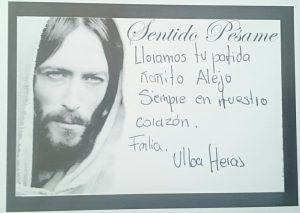 Sentido Pésame
Lloramos tu partida
Ñañito Alejo
Siempre en nuestro
corazón.
Fmlia.
Ulba Heras